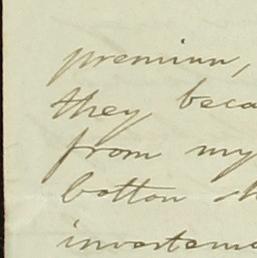 premium,
they beca
from my
botton
investeme